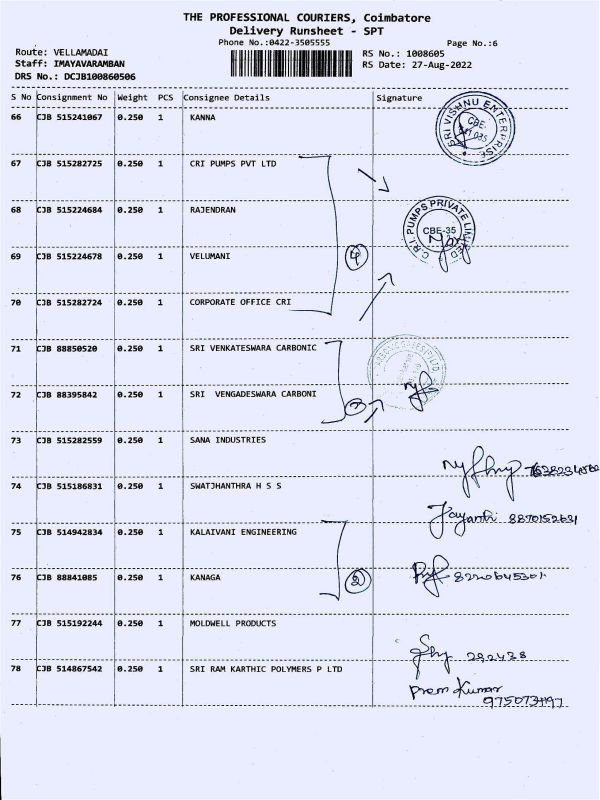 THE PROFESSIONAL COURIERS, Coimbatore
Delivery Runsheet - SPT
Phone No.:0422-3505555
Page No.:6
Route: VELLAMADAI
RS No.: 1008605
Staff: IMAYAVARAMBAN
RS Date: 27-Aug-2022
DRS No.: DCJB100860506
S No Consignment No Weight PCS Consignee Details Signature
66 CJB 515241067 0.250 1 KANNA
SRI VISHNU ENTERPRISE
CBE-
67 CJB 515282725 0.250 1 CRI PUMPS PVT LTD
68 CJB 515224684 0.250 1 RAJENDRAN
C.R.I. PUMPS PRIVATE LIMITED
CBE-35
69 CJB 515224678 0.250 1 VELUMANI
4
70 CJB 515282724 0.250 1 CORPORATE OFFICE CRI
71 CJB 88850520 0.250 1 SRI VENKATESWARA CARBONIC
72 CJB 88395842 0.250 1 SRI VENGADESWARA CARBONI
73 CJB 515282559 0.250 1 SANA INDUSTRIES
74 CJB 515186831 0.250 1 SWATJHANTHRA H S S
Jayanthi 8870152631
75 CJB 514942834 0.250 1 KALAIVANI ENGINEERING
76 CJB 88841085 0.250 1 KANAGA
2
8220645301
77 CJB 515192244 0.250 1 MOLDWELL PRODUCTS
292438
78 CJB 514867542 0.250 1 SRI RAM KARTHIC POLYMERS P LTD
Prem Kumar